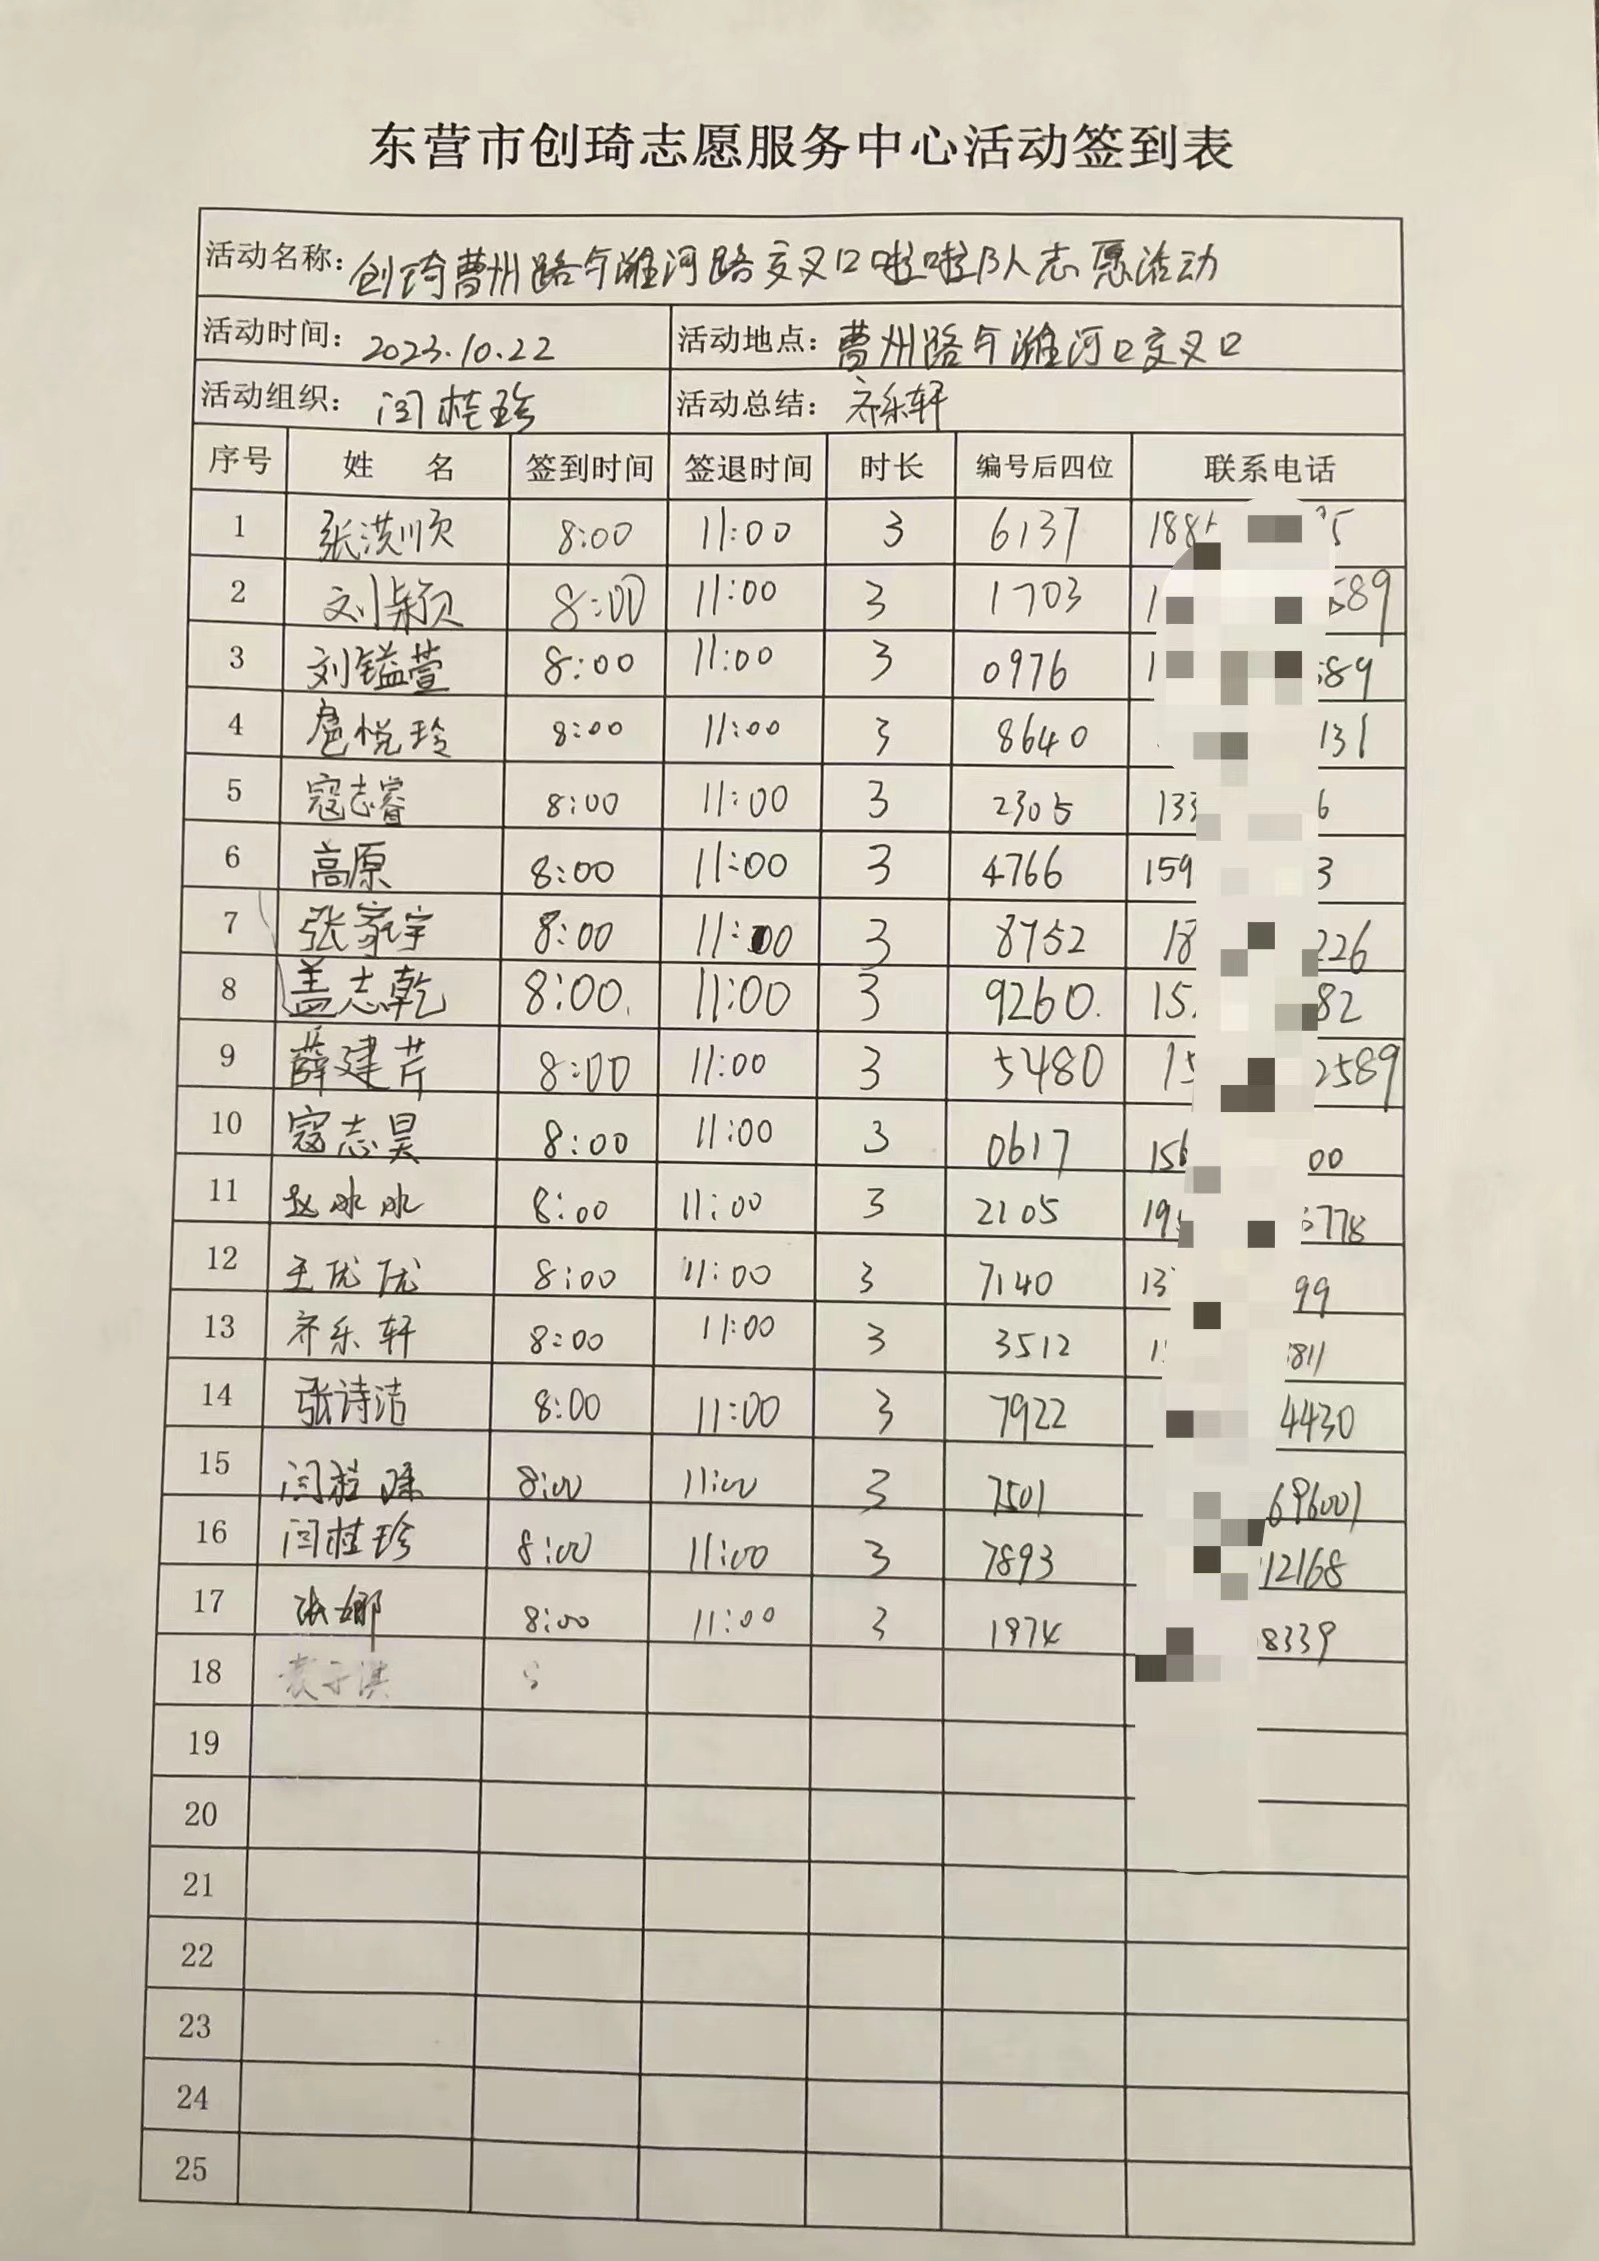 东营市创琦志愿服务中心活动签到表
活动名称：创琦曹州路与潍河路交叉口啦啦队志愿活动
活动时间：2023.10.22 活动地点：曹州路与潍河口交叉口
活动组织：闫桂珍 活动总结：齐乐轩
序号 姓 名 签到时间 签退时间 时长 编号后四位 联系电话
1 张洪顺 8:00 11:00 3 6137 188 5
2 刘颖 8:00 11:00 3 1703 1 589
3 刘镒萱 8:00 11:00 3 0976 1 589
4 扈悦玲 8:00 11:00 3 8640 131
5 寇志睿 8:00 11:00 3 2305 133 6
6 高原 8:00 11:00 3 4766 159 3
7 张家宇 8:00 11:00 3 8752 18 226
8 盖志乾 8:00. 11:00 3 9260. 15 82
9 薛建芹 8:00 11:00 3 5480 15 2589
10 寇志昊 8:00 11:00 3 0617 156 00
11 赵冰冰 8:00 11:00 3 2105 19 778
12 王优优 8:00 11:00 3 7140 13 99
13 齐乐轩 8:00 11:00 3 3512 1 811
14 张诗洁 8:00 11:00 3 7922 4430
15 8:00 11:00 3 7501 696001
16 闫桂珍 8:00 11:00 3 7893 12168
17 张娜 8:00 11:00 3 1974 8339
18 袁子淇 8
19
20
21
22
23
24
25